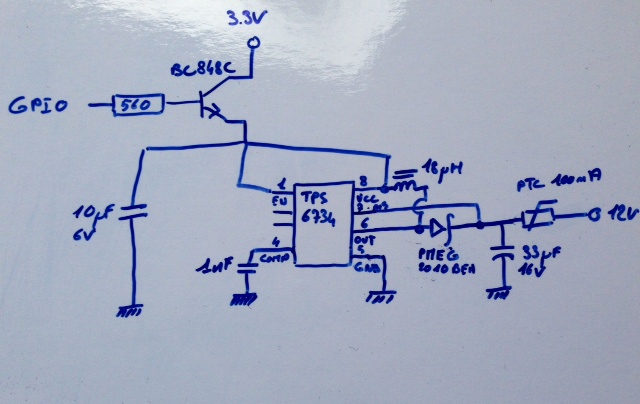 3.3V
BC848C
GPIO
560
10µF
6V
1
EN
TPS
6734
8
VCC
18µH
7
FB
6
OUT
5
GND
4
COMP
1nF
PMEG
2010BEA
PTC 100mA
12V
33µF
16V